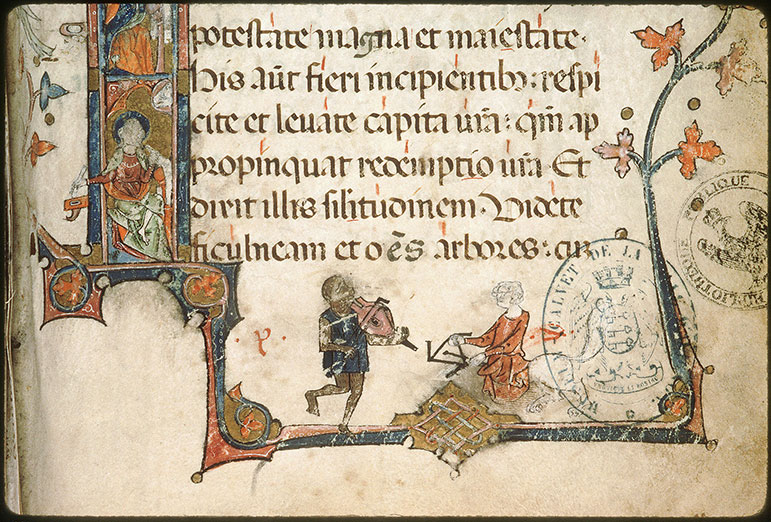 potestate magna et maiestate.
His aut fieri incipientib; respi
cite et levate capita vra: qm ap
propinquat redemptio vra. Et
dixit illis silitudinem. Videte
ficulneam et oēs arbores: cu
CALVET DE LA
BIBLIOTHEQUE PUBLIQUE